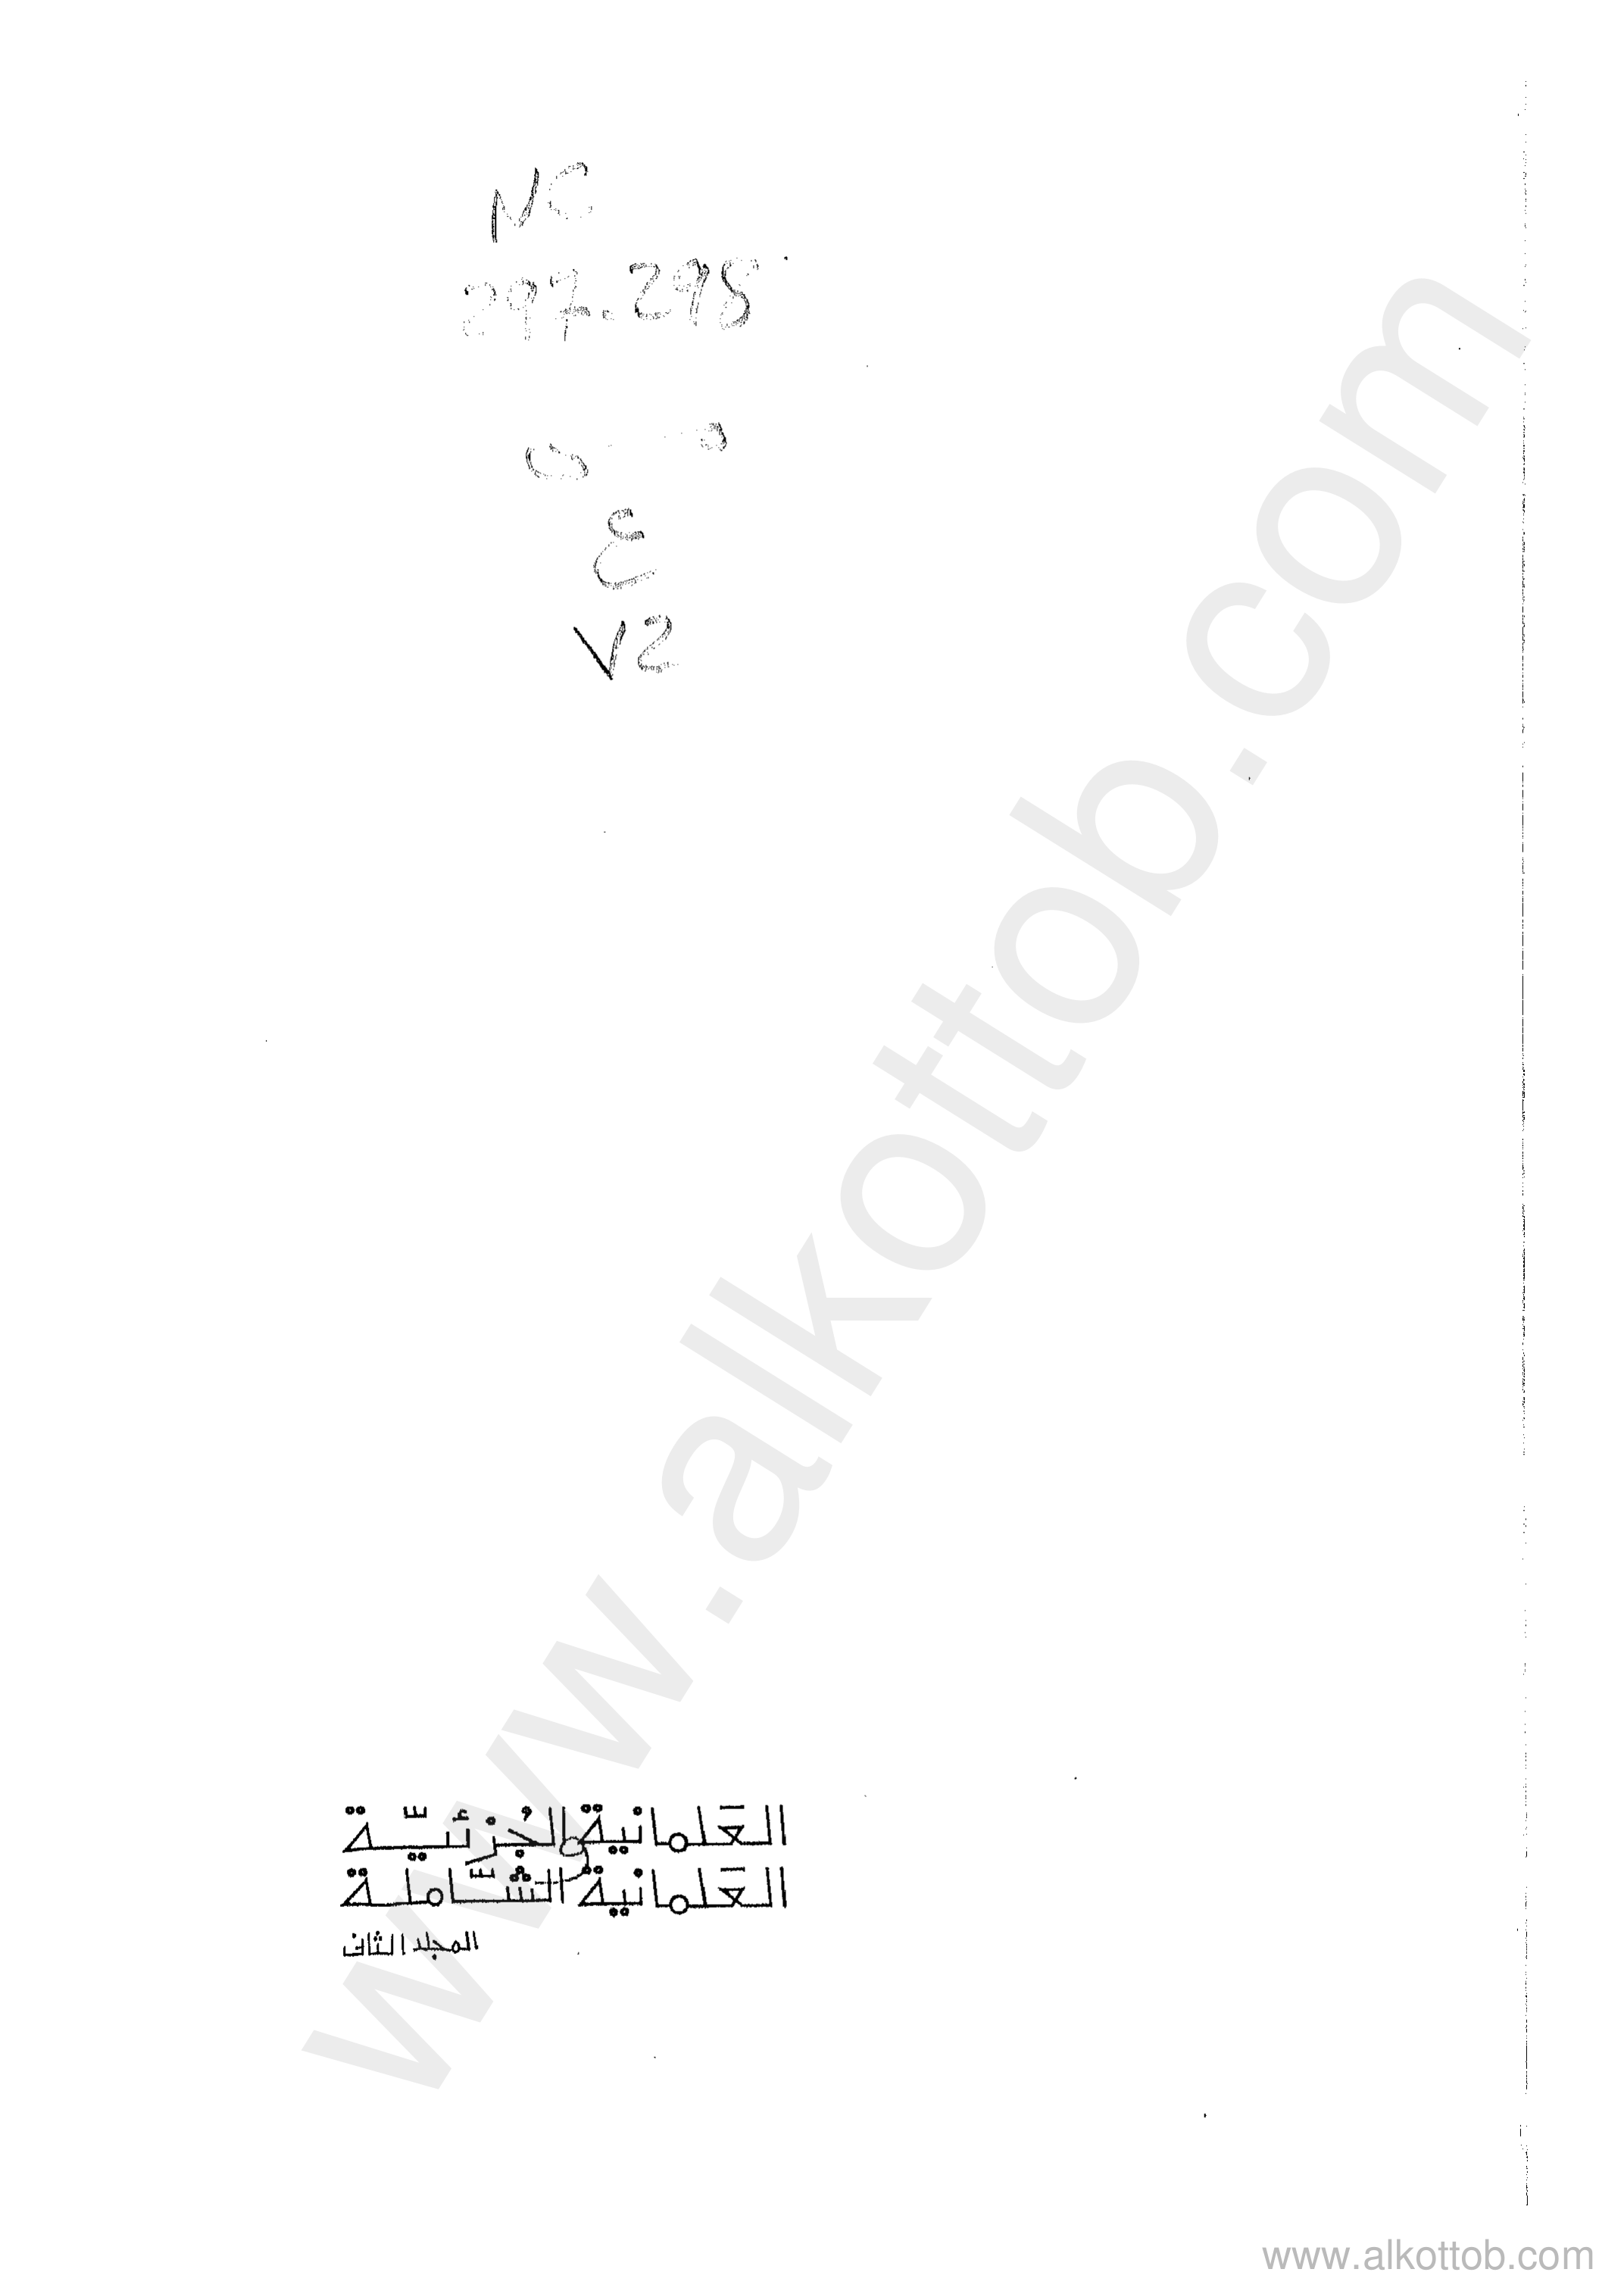 NC
297.298
ع
V2
العَلمانية الجُزئيّة
و
العَلمانية الشّاملة
المجلد الثاني
www.alkottob.com
www.alkottob.com